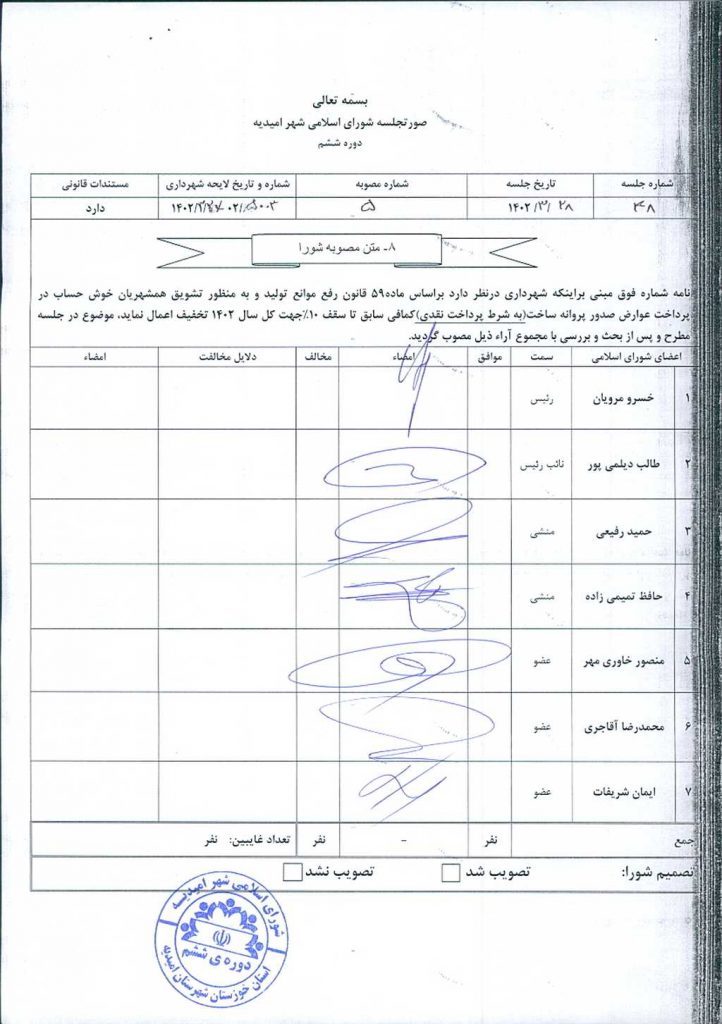 بسمه تعالی
صورتجلسه شورای اسلامی شهر امیدیه
دوره ششم
شماره جلسه تاریخ جلسه شماره مصوبه شماره و تاریخ لایحه شهرداری مستندات قانونی
۴۸ ۱۴۰۲/۳/۲۸ ۵ دارد
۸- متن مصوبه شورا
نامه شماره فوق مبنی براینکه شهرداری درنظر دارد براساس ماده۵۹ قانون رفع موانع تولید و به منظور تشویق همشهریان خوش حساب در
پرداخت عوارض صدور پروانه ساخت(به شرط پرداخت نقدی)کمافی سابق تا سقف ۱۰٪جهت کل سال ۱۴۰۲ تخفیف اعمال نماید، موضوع در جلسه
مطرح و پس از بحث و بررسی با مجموع آراء ذیل مصوب گردید.
اعضای شورای اسلامی سمت موافق امضاء مخالف دلایل مخالفت امضاء
۱ خسرو مرویان رئیس
۲ طالب دیلمی پور نائب رئیس
۳ حمید رفیعی منشی
۴ حافظ تمیمی زاده منشی
۵ منصور خاوری مهر عضو
۶ محمدرضا آقاجری عضو
۷ ایمان شریفات عضو
جمع نفر - نفر تعداد غایبین: نفر
تصمیم شورا: تصویب شد تصویب نشد
شورای اسلامی شهر امیدیه
دوره ی ششم
استان خوزستان شهرستان امیدیه